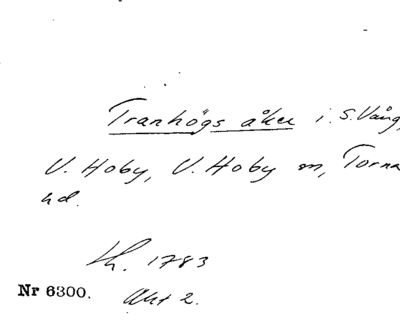 Tranhögs åker i S. Vång,
V. Hoby, V. Hoby sn, Torna
hd.
Lh. 1783
Nr 6300. Akt 2.